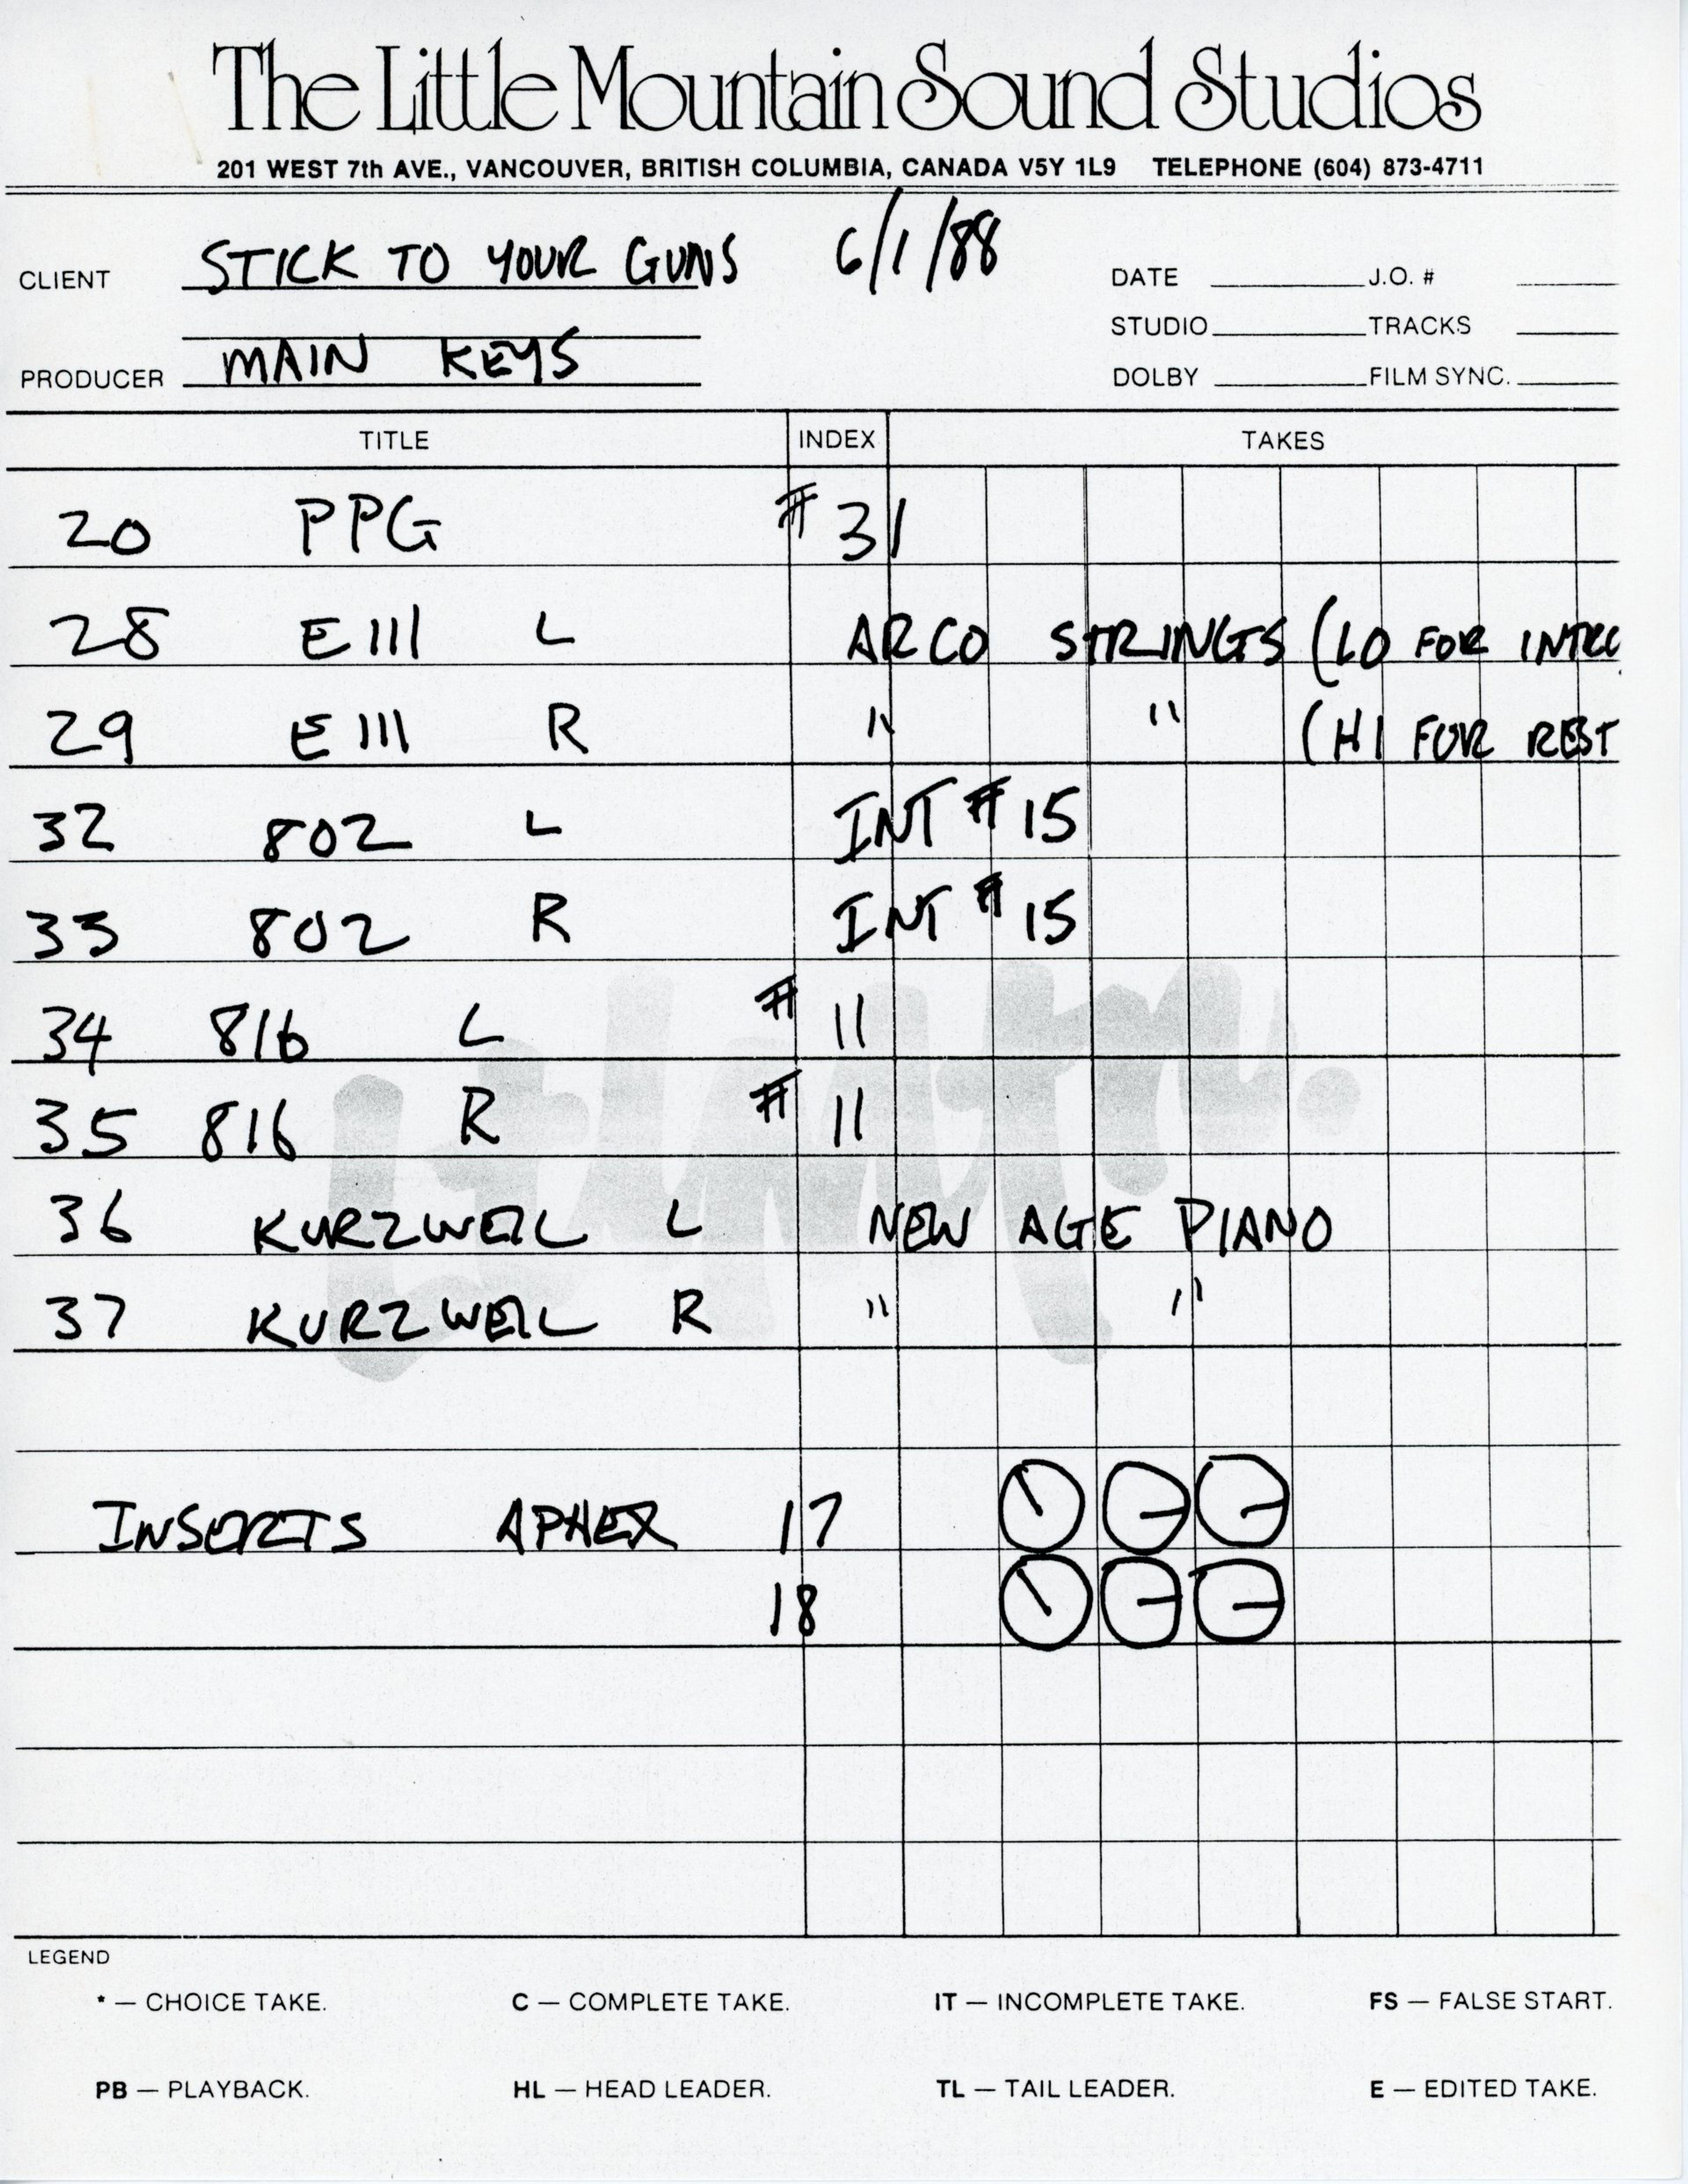 The Little Mountain Sound Studios
201 WEST 7th AVE., VANCOUVER, BRITISH COLUMBIA, CANADA V5Y 1L9 TELEPHONE (604) 873-4711
CLIENT STICK TO YOUR GUNS 6/1/88
DATE J.O. #
STUDIO TRACKS
PRODUCER MAIN KEYS
DOLBY FILM SYNC.
TITLE INDEX TAKES
20 PPG # 31
28 E III L ARCO STRINGS (LO FOR INTRO
29 E III R " " (HI FOR REST
32 802 L INT # 15
33 802 R INT # 15
34 816 L # 11
35 816 R # 11
36 KURZWEIL L NEW AGE PIANO
37 KURZWEIL R " "
INSERTS APHEX 17
18
LEGEND
* — CHOICE TAKE. C — COMPLETE TAKE. IT — INCOMPLETE TAKE. FS — FALSE START.
PB — PLAYBACK. HL — HEAD LEADER. TL — TAIL LEADER. E — EDITED TAKE.